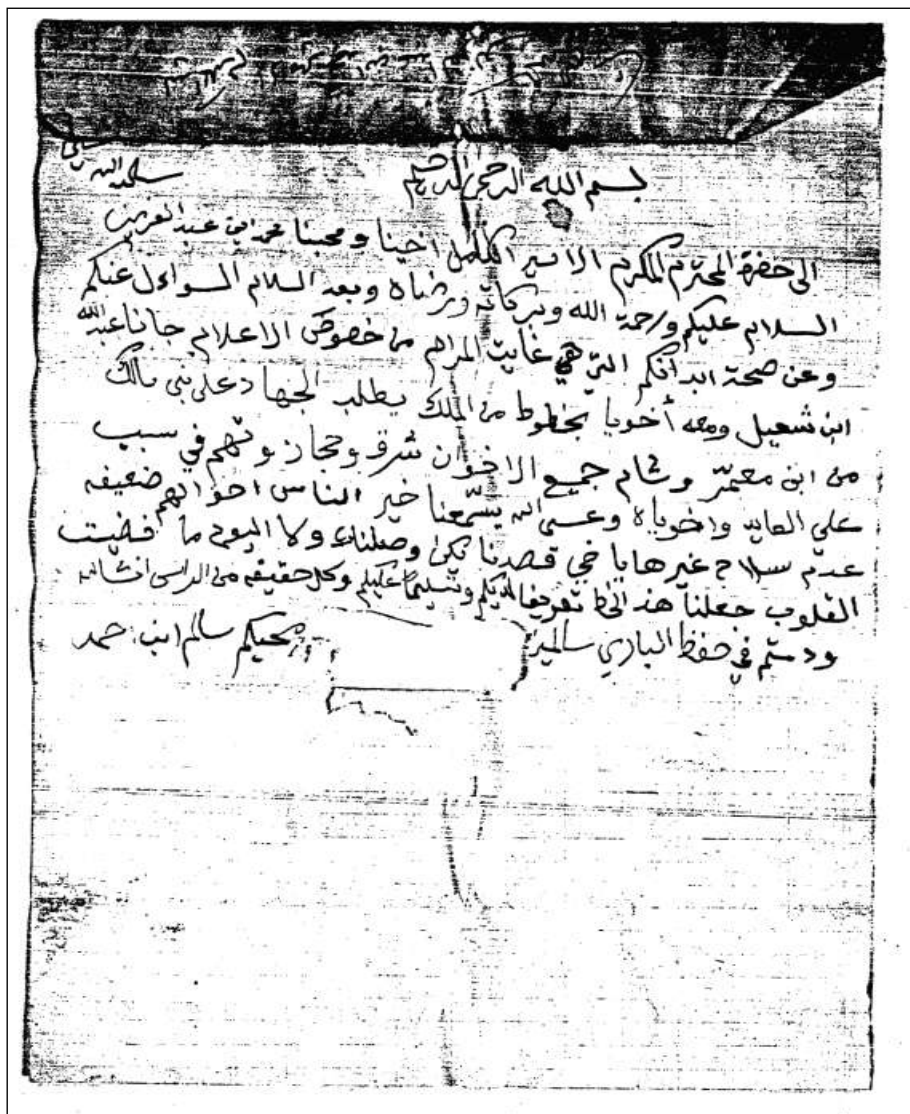 بسم الله الرحمن الرحيم
سلمه الله تعالى
الى حضرة المحترم المكرم الامير اخينا ومحبنا محمد ابن عبد العزيز
السلام عليكم ورحمة الله وبركاته ورضاه وبعد السلام السواءل عنكم
وعن صحة ابدانكم التي هي غايت المرام من خصوص الاعلام جانا عبد الله
ابن شعيل ومعه أخويا بخطوط من الملك يطلب الجهاد على بني مالك
من ابن معمر وشام جميع الاخوان شرق وحجاز في سبب
علي العابد واخوياه وعسى الله يسمعنا خير الناس احوالهم ضعيفه
عدم سلاح غير هايا في قصدنا وصلناك ولا اليوم ما فضيت
القلوب جعلنا هذ الخط تعريفا لديكم وتسليما عليكم وكل حقيقه من الراس انشالله
ودمتم في حفظ الباري سالمين
محبكم سالم ابن حمد